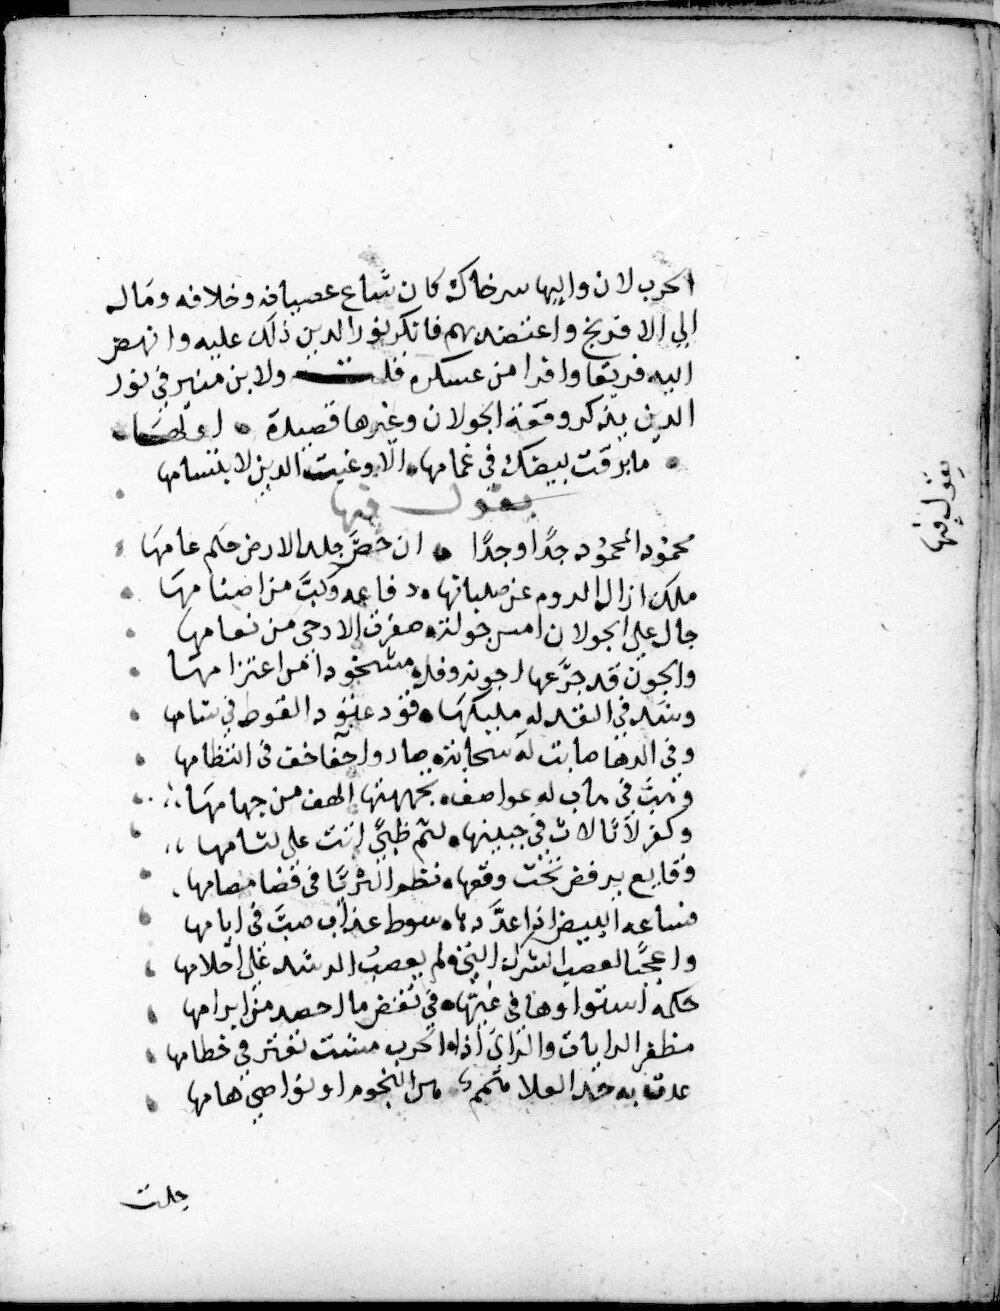 الحرب لان واليها سرخاك كان شاع عصيانه وخلافه ومال
الي الافرنج واعتضد بهم فانكر نور الدين ذلك عليه وانهض
اليه فريقا وافرا من عسكره قلت ولابن منير في نور
الدين يذكر وقعة الجولان وغيرها قصيدة اولها
ما برقت بيضك في غمامها الا وغيث الدين لابتسامها
يقول فيها
محمود المحمود جدا وجدا ان خص جلد الارض حلم عامها
ملك ازال الروم عن صلبانها دفاعه وكب من اصنامها
جال علي الجولان امس جولة صفرت الادحي من نعامها
والجون قد جرعها لجونه وفله مشحوذا من اعتزامها
وشد في القد له مليكها قود عتود القوط في شامها
وفي الرها صابت له سحابة صادوا خفاخف في انتظامها
وهب في هاب له عواصف جهجهها الهف من جهامها
وكفرلاثا لاث في جبينها لثم ظبي اتت علي لثامها
وقايع يرفض تحت وقعها نظم الثريا في فضا مصامها
مساعد البيض اذا عددها سوط عذاب صب في ايامها
واعجبا لعصب الشرك التي لم يعصب الرشد علي احلامها
حكمه استواوها في غيها في نقض ما احصد من ابرامها
مظفر الرايات والراي اذا الحرب مشت تعثر في خطامها
عدت به خد العلا متمم من النجوم او نواصي هامها
جلت
يقول فيها